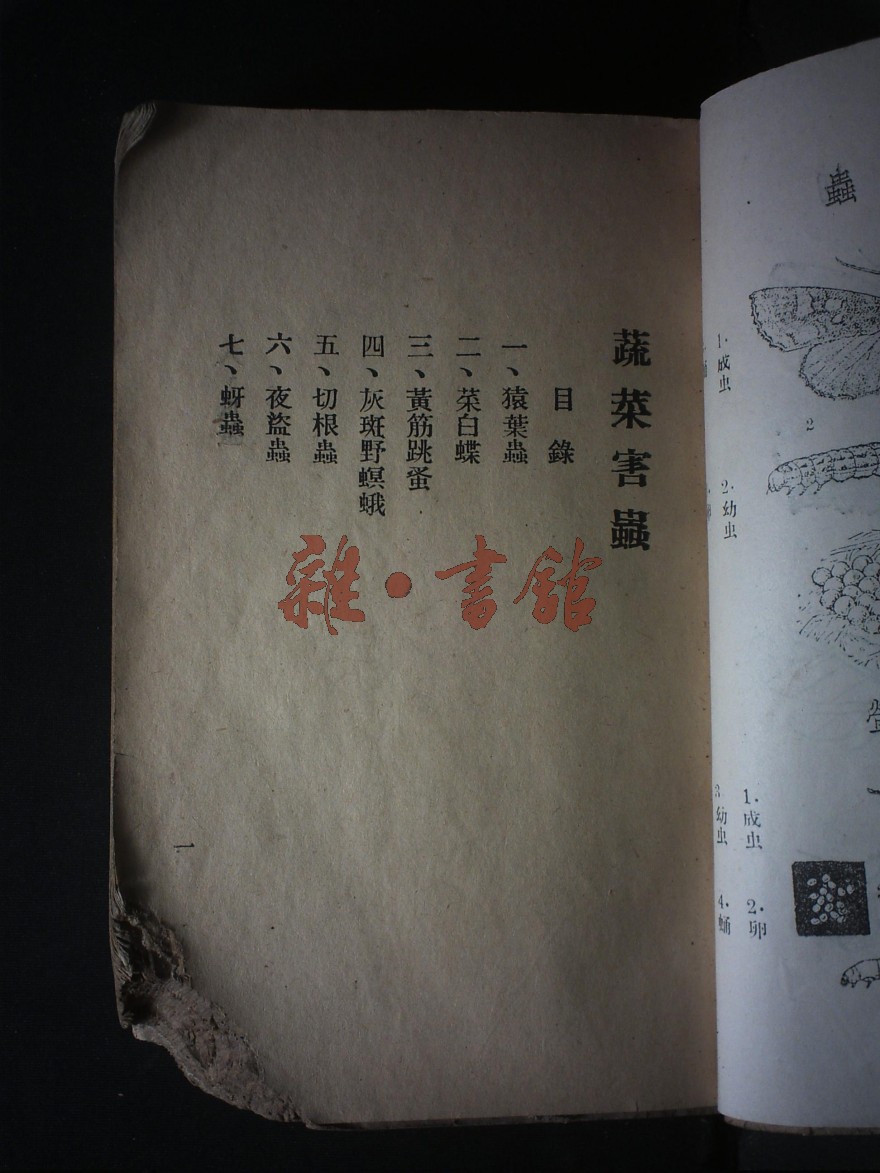 蟲
1·成虫
2·幼虫
2
1·成虫
2·卵
3·幼虫
4·蛹
蔬菜害蟲
目錄
一、猿葉蟲
二、菜白蝶
三、黃筋跳蚤
四、灰斑野螟蛾
五、切根蟲
六、夜盜蟲
七、蚜蟲
一
雜·書館